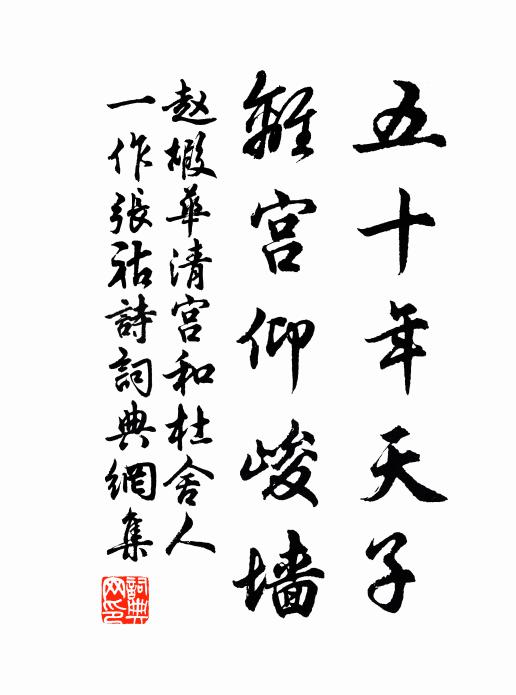 五十年天子
離宮仰峻墙
赵嘏華清宫和杜舍人
一作張祜詩詞典網集
詞典网印